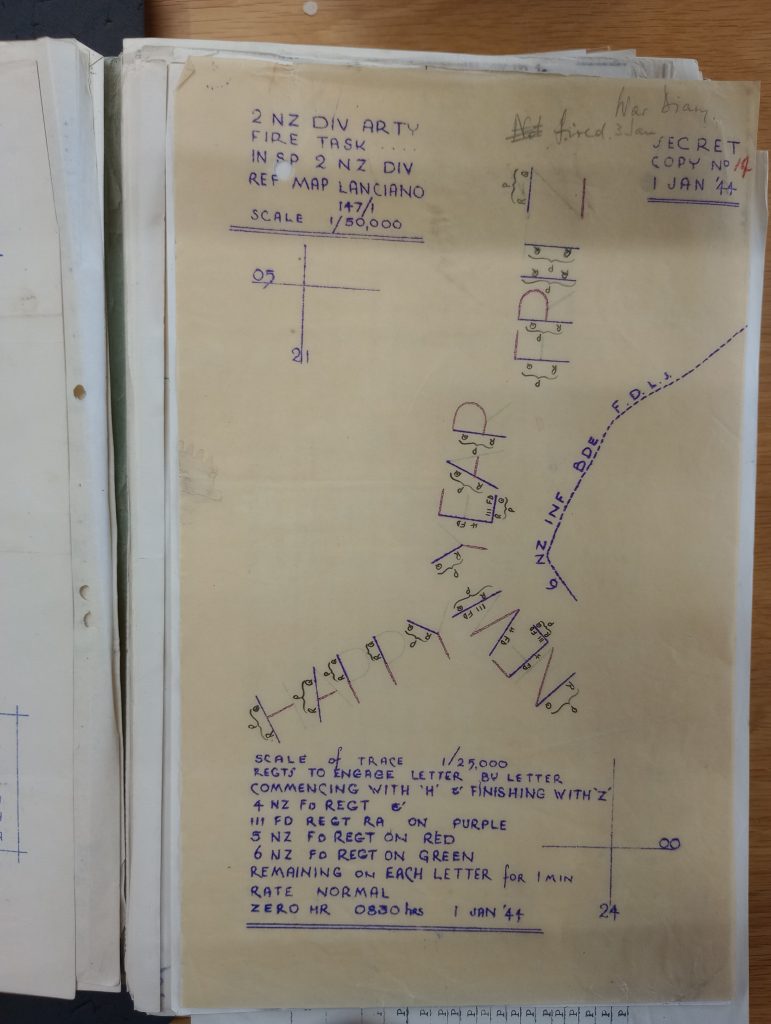 War Diary.
Not fired. 3 Jan
2 NZ DIV ARTY
FIRE TASK ....
IN SP 2 NZ DIV
REF MAP LANCIANO
147/1
SCALE 1/50,000
SECRET
COPY No 14
1 JAN '44
05
21
F.D.L.s.
6 NZ INF BDE
HAPPY
NEW
YEAR
FRITZ
P
Q
R
4 FD
111 FD
SCALE of TRACE 1/25,000
REGTS TO ENGAGE LETTER BY LETTER
COMMENCING WITH 'H' & FINISHING WITH 'Z'
4 NZ FD REGT &
111 FD REGT RA ON PURPLE
5 NZ FD REGT ON RED
6 NZ FD REGT ON GREEN
REMAINING ON EACH LETTER for 1 MIN
RATE NORMAL
ZERO HR 0830 hrs 1 JAN '44
00
24